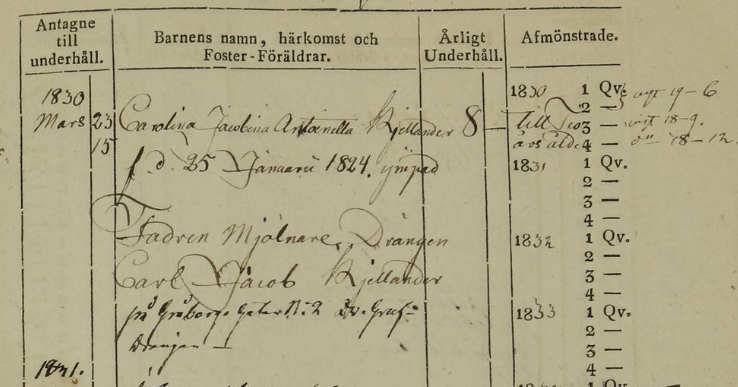 Antagne
till
underhåll.
Barnens namn, härkomst och
Foster-Föräldrar.
Årligt
Underhåll.
Afmönstrade.
1830
Mars 23
15
Carolina Jacobina Antonetta Kjellander 8 —
f. d. 25 Januarii 1824. ympad
Fadren Mjölnare Drängen
Carl Jacob Kjellander
på Gatan N:2
Drängen —
1831.
1830 1 Qv.
2 —
till 3 —
års ålder 4 —
1831 1 Qv.
2 —
3 —
4 —
1832 1 Qv.
2 —
3 —
4 —
1833 1 Qv.
2 —
3 —
4 —
1 Qv.
19-6
18-9.
18-12.